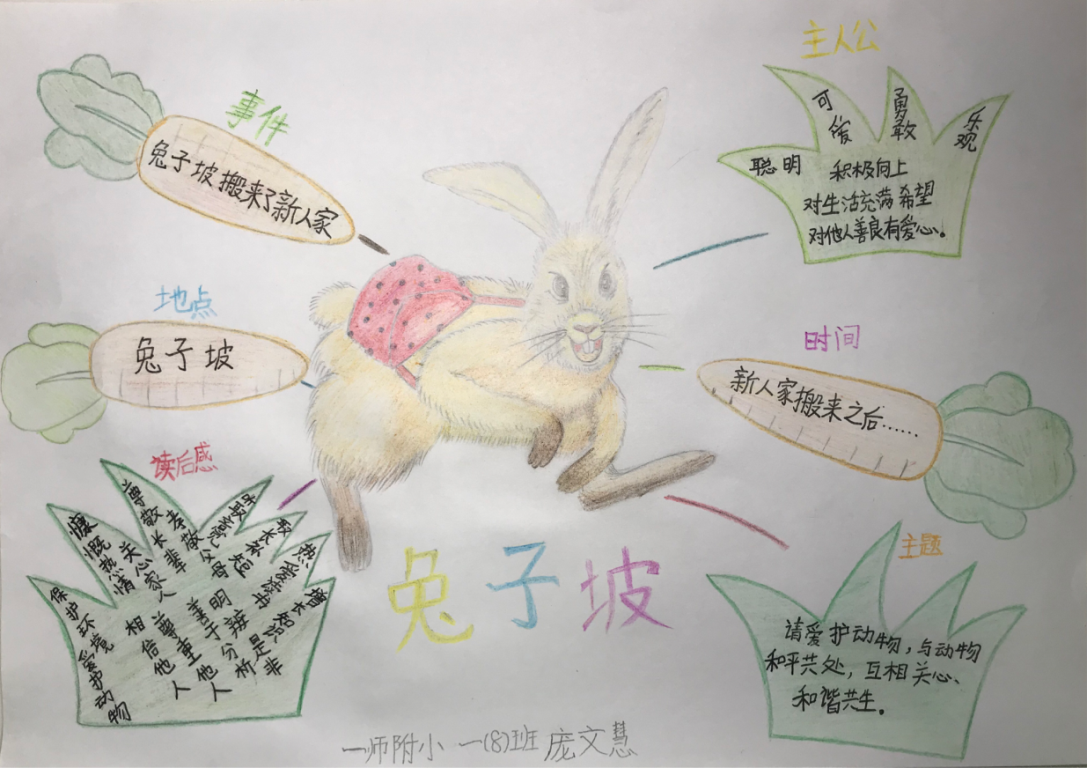 事件
兔子坡搬来了新人家
地点
兔子坡
读后感
保护环境 爱护动物
慷慨热情
关心家人 相信他人
尊敬长辈 尊重他人
孝敬父母 善于分析
明辨是非
增长知识
主人公
聪明
可爱
勇敢
乐观
积极向上
对生活充满希望
对他人善良有爱心。
时间
新人家搬来之后……
主题
请爱护动物，与动物
和平共处，互相关心、
和谐共生。
兔子坡
一师附小 一(8)班 庞文慧